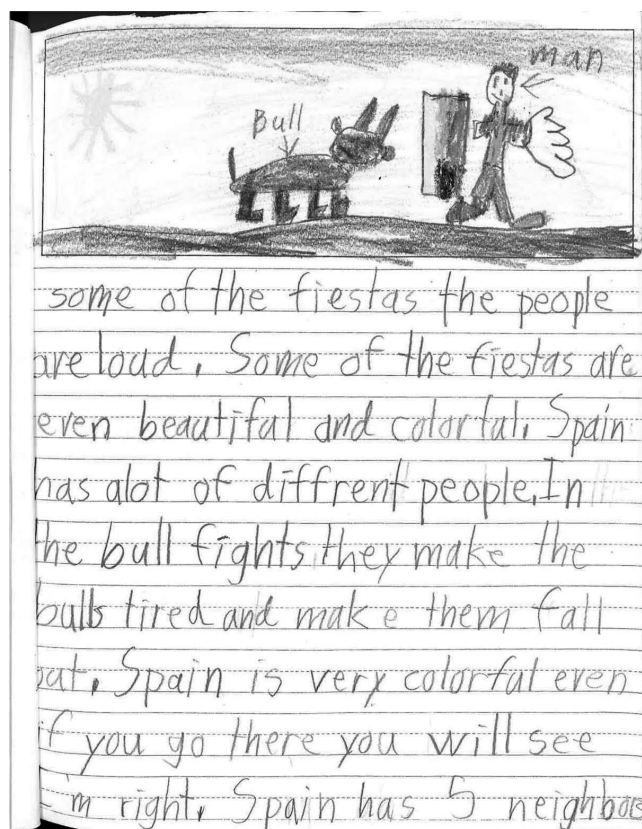 man
Bull
some of the fiestas the people
are loud. Some of the fiestas are
even beautiful and colorful. Spain
has alot of diffrent people. In
the bull fights they make the
bulls tired and make them fall
out. Spain is very colorful even
if you go there you will see
I'm right. Spain has 5 neighbors